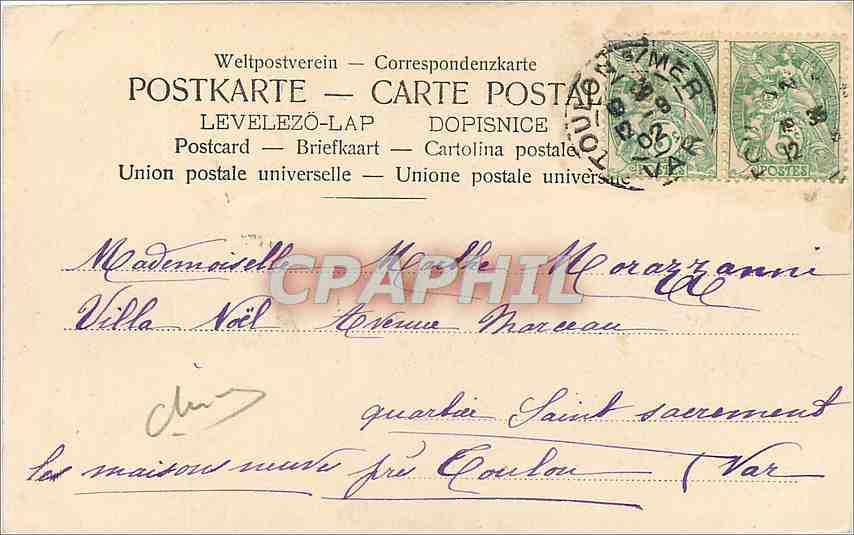 Weltpostverein — Correspondenzkarte
POSTKARTE — CARTE POSTAL
LEVELEZÖ-LAP DOPISNICE
Postcard — Briefkaart — Cartolina postale
Union postale universelle — Unione postale universelle
TOULON S/MER
VAR
POSTES
CPAPHIL
Mademoiselle Marthe Morazzanni
Villa Noël Avenue Marceau
quartier Saint sacrement
les maisons neuve près Toulon (Var